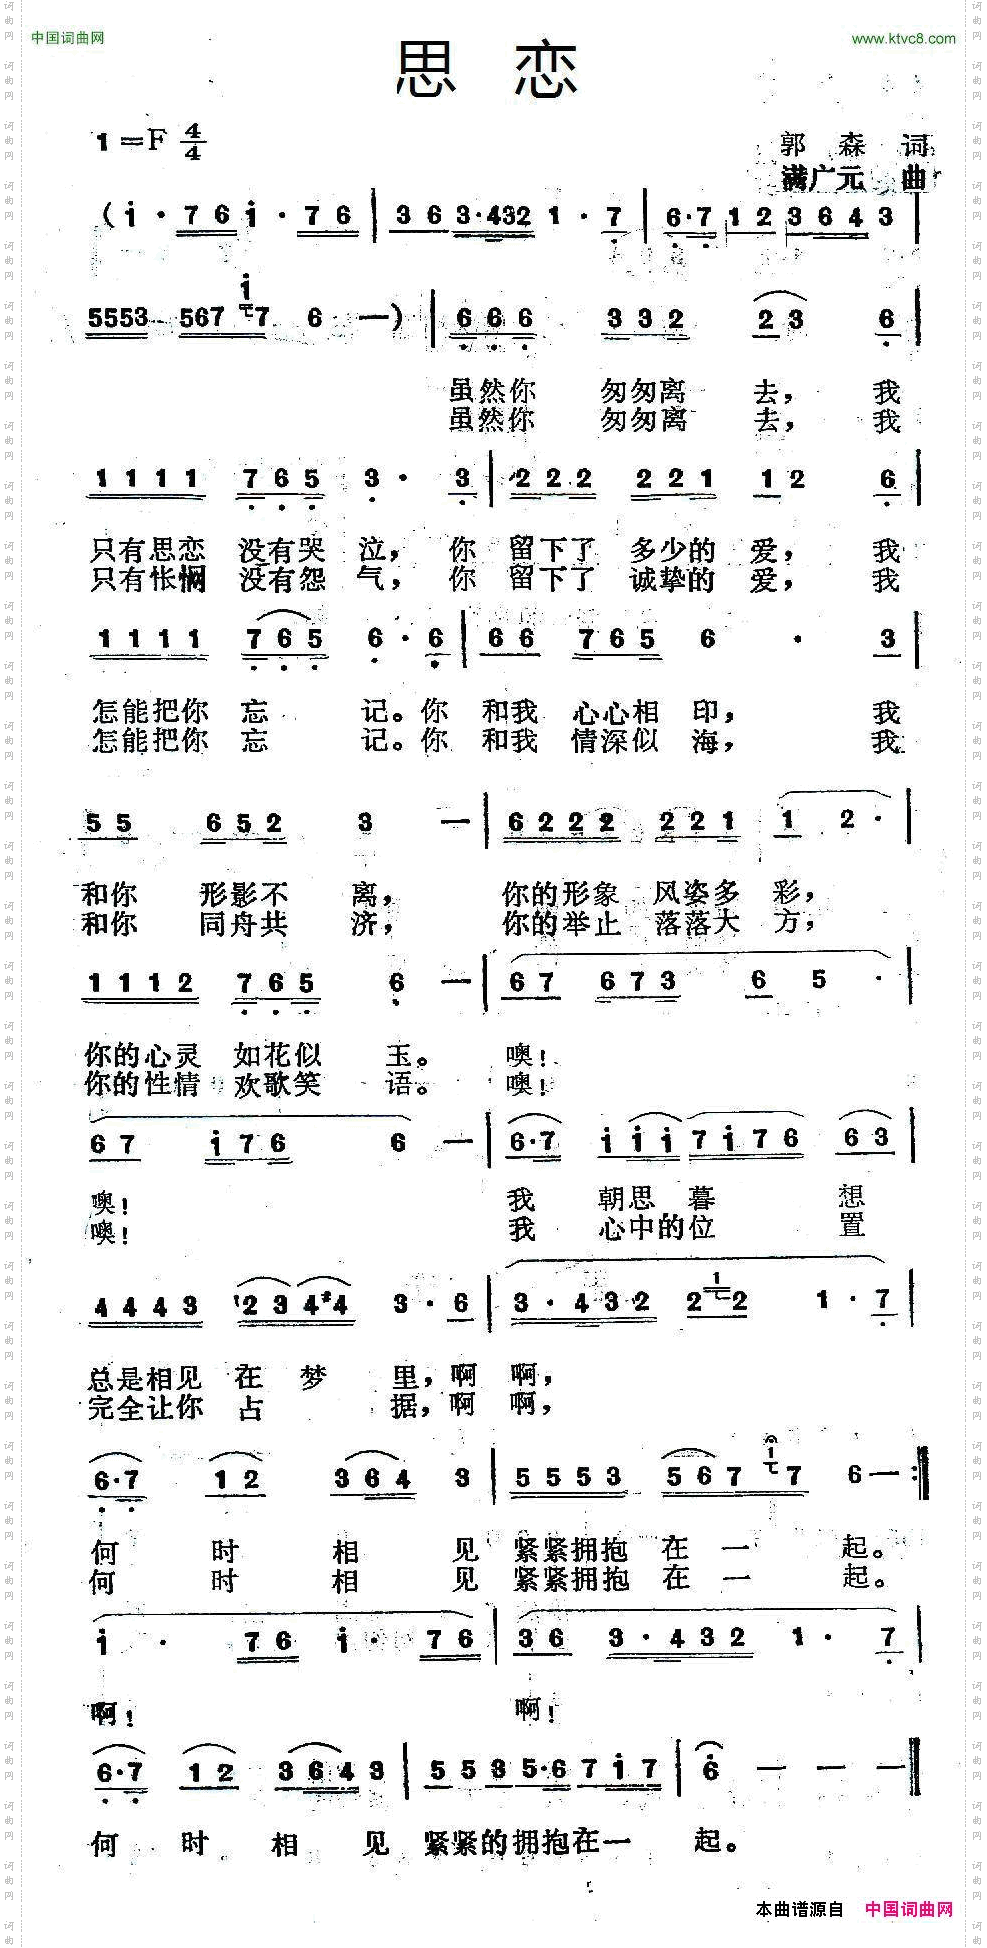 中国词曲网
www.ktvc8.com
思 恋
1=F 4/4
郭 森 词
满广元 曲
(i· 7 6 i· 7 6 | 3 6 3·432 1· 7 | 6·7 1 2 3 6 4 3 |
5553 567 i 7 6 —) | 6 6 6 3 3 2 2 3 6 |
虽然你 匆匆离 去， 我
虽然你 匆匆离 去， 我
1 1 1 1 7 6 5 3· 3 | 2 2 2 2 2 1 1 2 6 |
只有思恋 没有哭 泣， 你 留下了 多少的 爱， 我
只有怅惘 没有怨 气， 你 留下了 诚挚的 爱， 我
1 1 1 1 7 6 5 6· 6 | 6 6 7 6 5 6 · 3 |
怎能把你 忘 记。你 和我 心心相 印， 我
怎能把你 忘 记。你 和我 情深似 海， 我
5 5 6 5 2 3 — | 6 2 2 2 2 2 1 1 2· |
和你 形影不 离， 你的形象 风姿多 彩，
和你 同舟共 济， 你的举止 落落大 方，
1 1 1 2 7 6 5 6 — | 6 7 6 7 3 6 5 · |
你的心灵 如花似 玉。 噢！
你的性情 欢歌笑 语。 噢！
6 7 i 7 6 6 — | 6·7 i i i 7 i 7 6 6 3 |
噢！ 我 朝思 暮 想
噢！ 我 心中的位 置
4 4 4 3 1 2 3 4 #4 3· 6 | 3· 4 3 2 2 1 2 1· 7 |
总是相见 在 梦 里，啊 啊，
完全让你 占 据，啊 啊，
6·7 1 2 3 6 4 3 | 5 5 5 3 5 6 7 i 7 6 — :||
何 时 相 见 紧紧拥抱 在 一 起。
何 时 相 见 紧紧拥抱 在 一 起。
i · 7 6 i · 7 6 | 3 6 3· 4 3 2 1· 7 |
啊！ 啊！
6·7 1 2 3 6 4 3 | 5 5 3 5·6 7 i 7 | 6 — — — ||
何 时 相 见 紧紧的拥抱在一 起。
本曲谱源自 中国词曲网